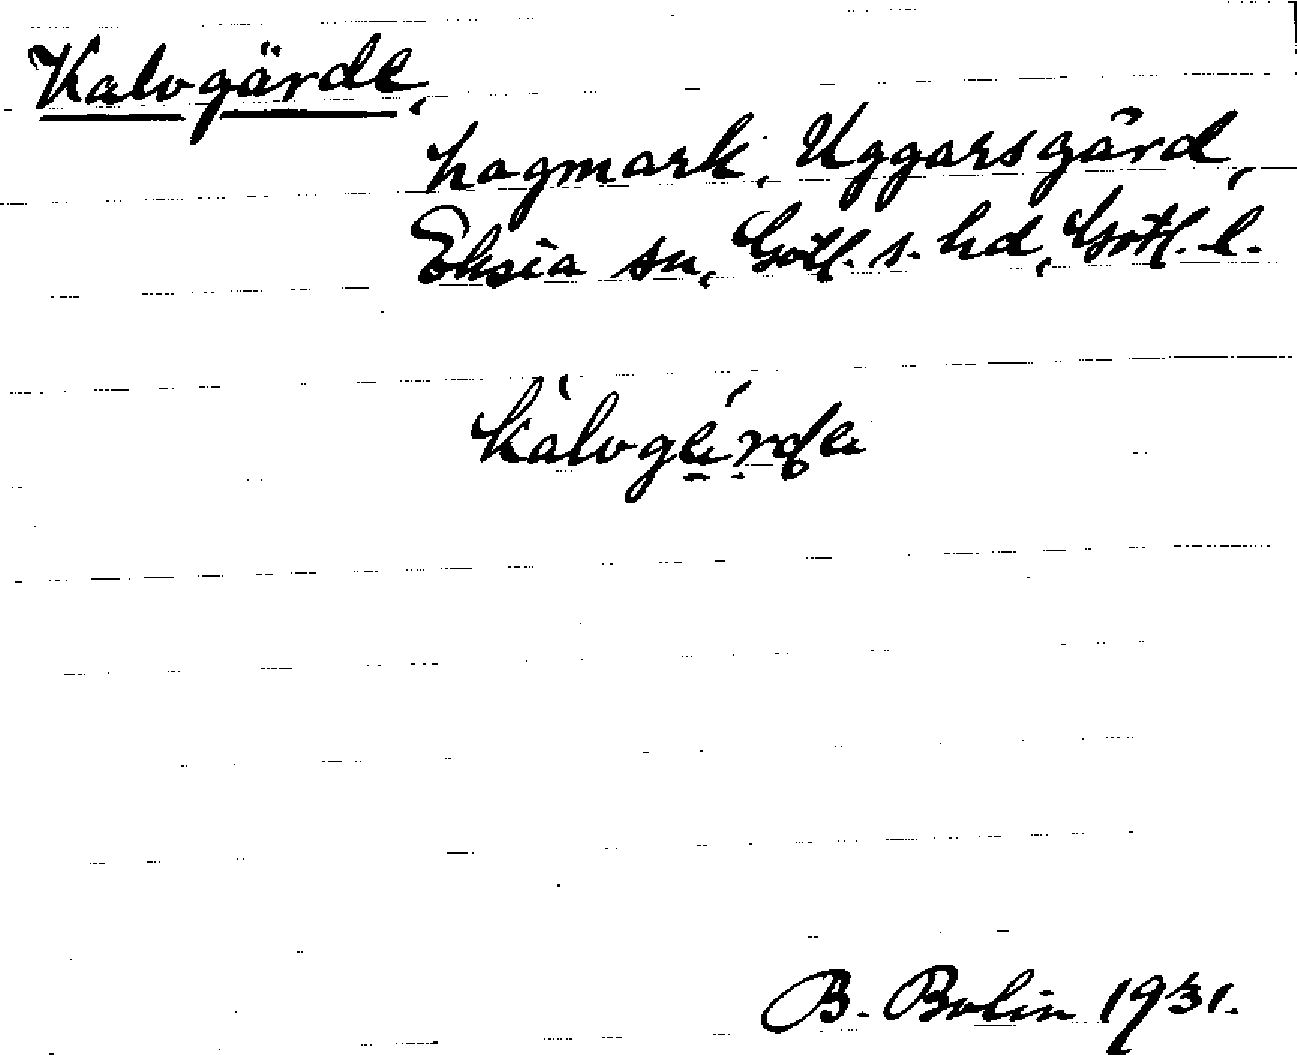 Kalvgärde,
hagmark, Uggarsgård,
Eksta sn, Gotl. s. hd, Gotl. l.
kàlvgǽrdæ
B. Bolin 1931.